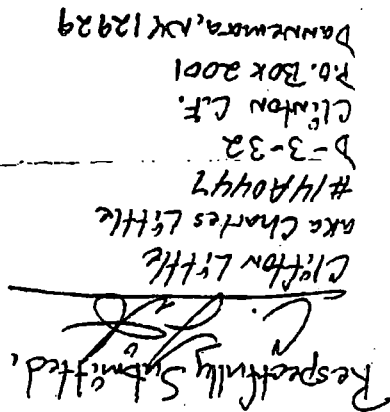 Respectfully Submitted,
Clifton Little
aka Charles Little
#14A0447
D-3-32
Clinton C.F.
P.O. Box 2001
Dannemora, NY 12929